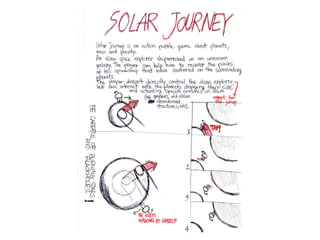 SOLAR JOURNEY
Solar Journey is an action puzzle game about planets,
mass and gravity.
An alien space explorer shipwrecked on an unknown
galaxy. The player can help him to recover the pieces
of his spaceship that have scattered on the surrounding
planets.
The player doesn't directly control the alien explorer,
but can interact with the planets changing their size
and activating "special features" on them
(eg geysers, old alien
abandoned
structures, etc).
the jump
TAP!
1
2
3
4
BE CAREFUL OF BURNING STARS
AND BLACKHOLES!
THE ALIEN
BY HIMSELF